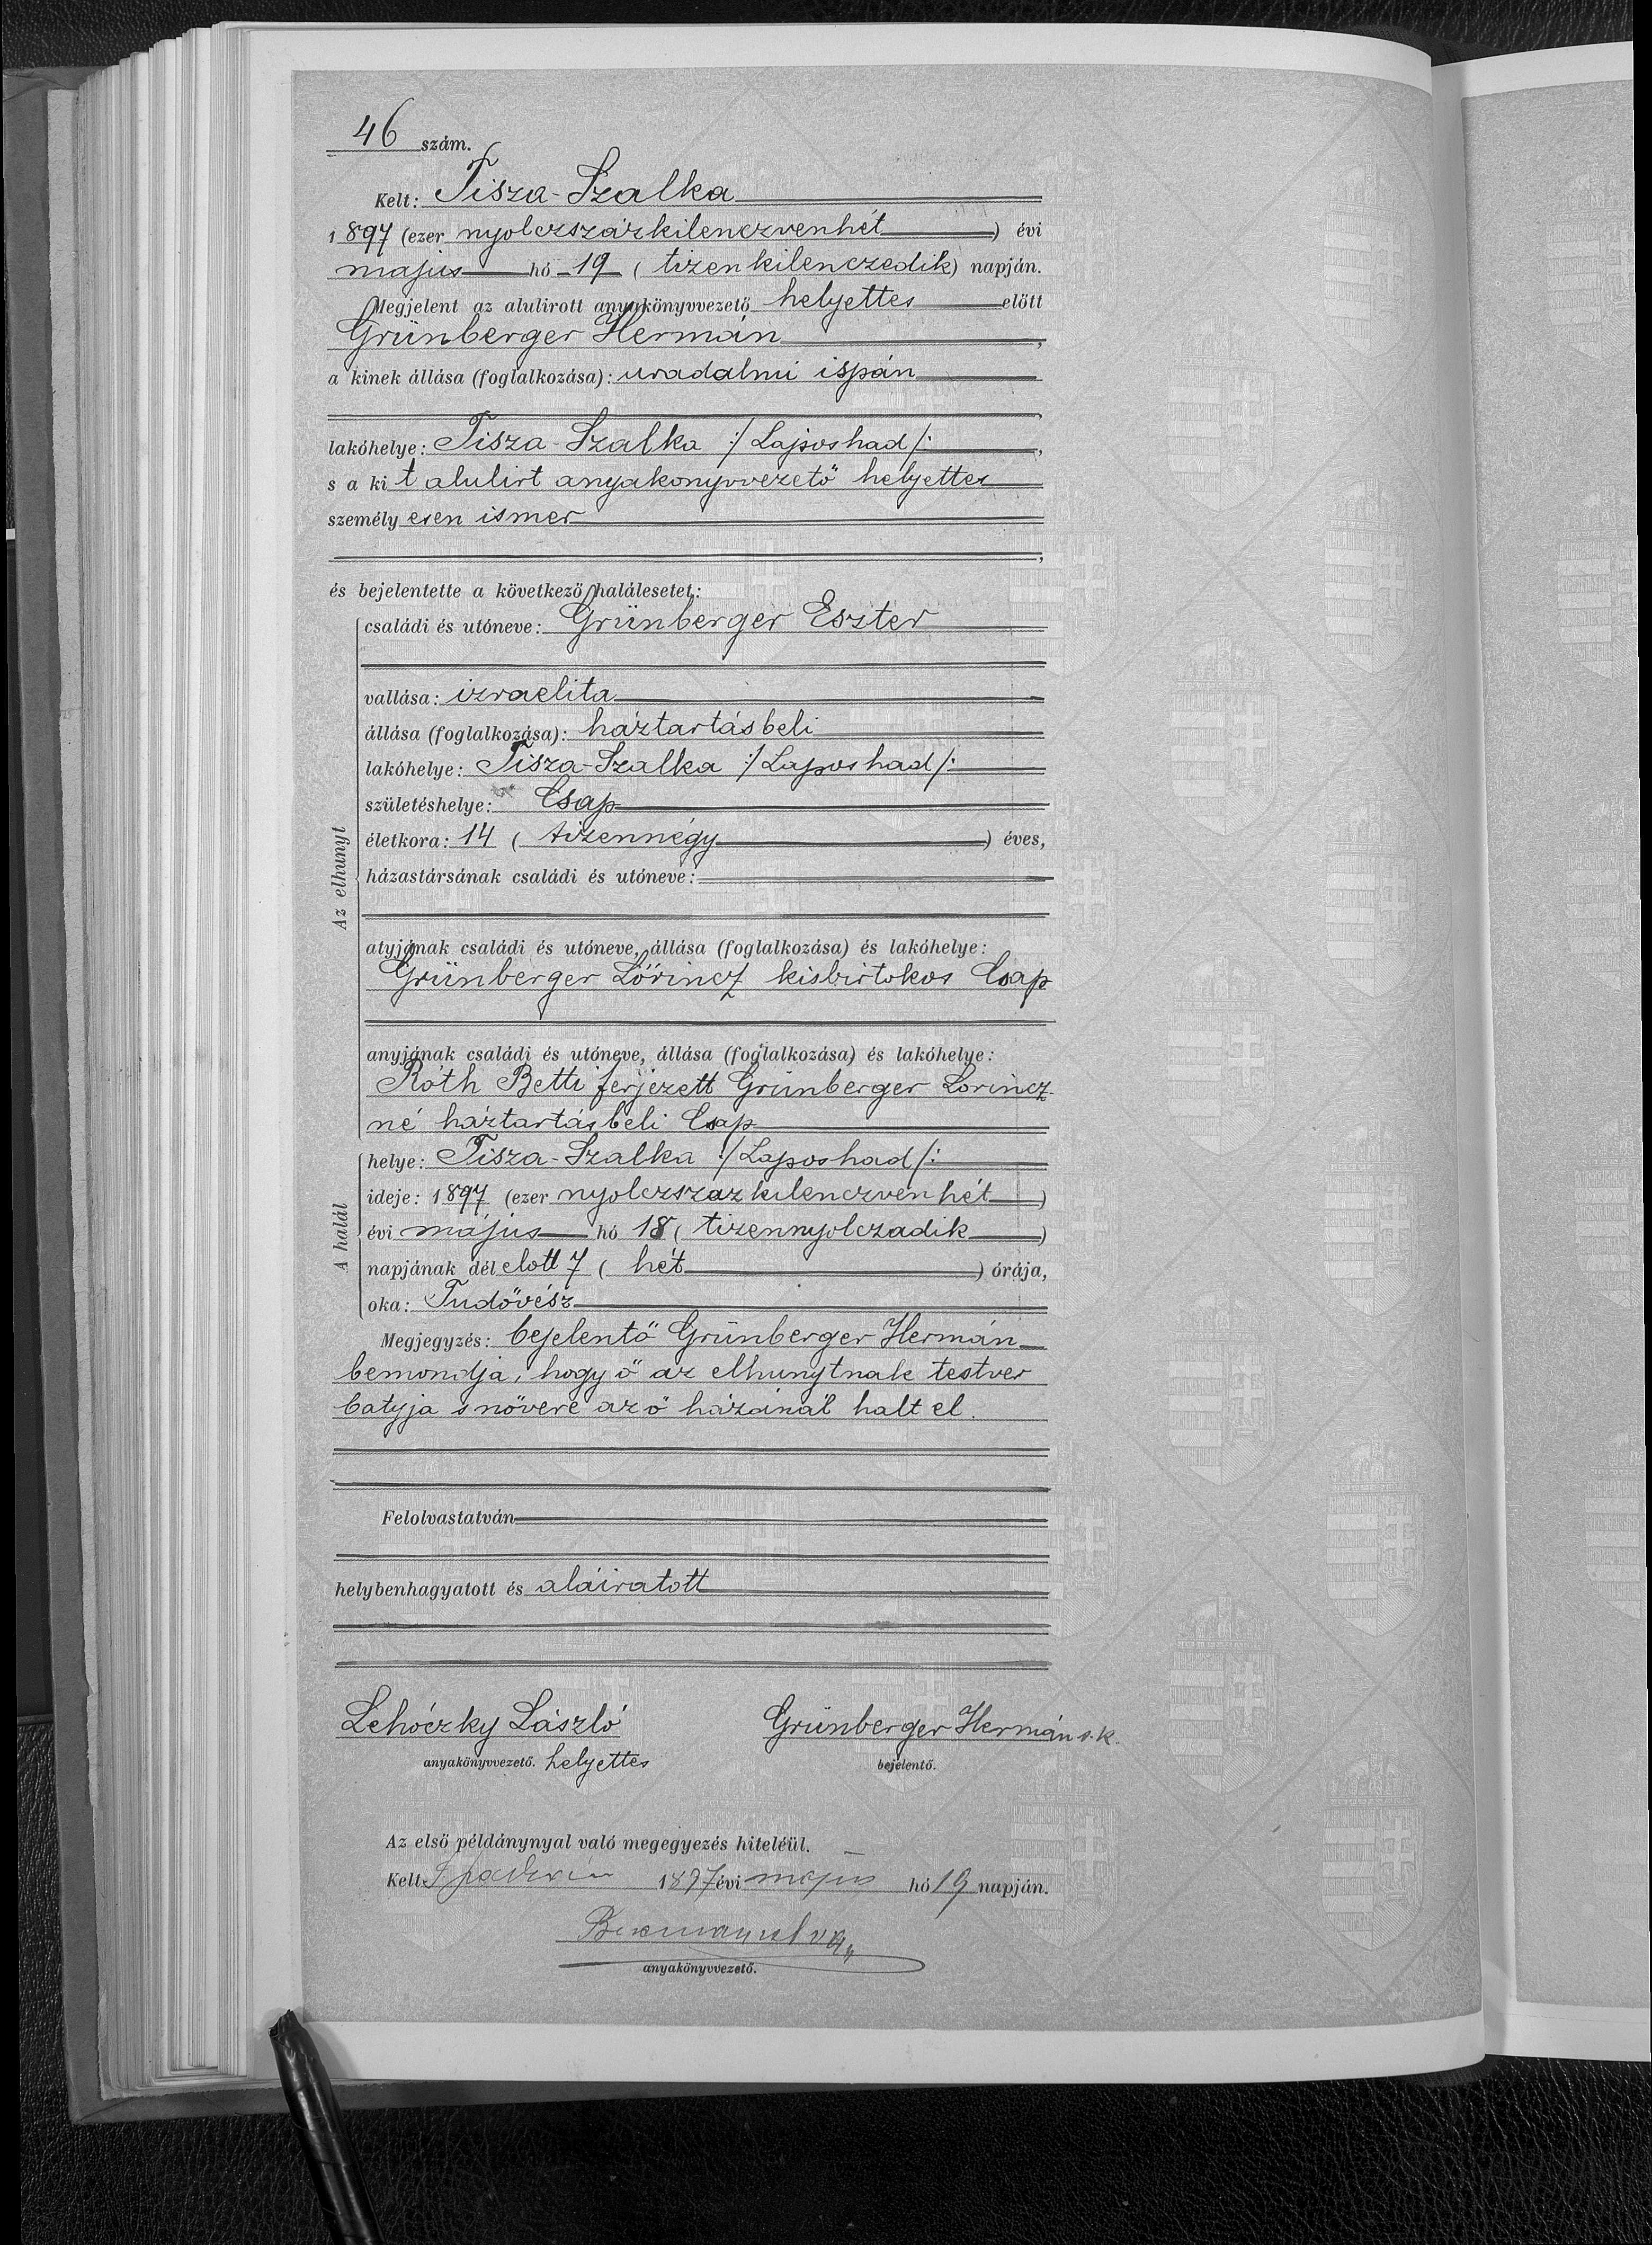 46 szám.
Kelt: Tisza-Szalka
1897 (ezer nyolczszázkilenczvenhét) évi
május hó 19 (tizenkilenczedik) napján.
Megjelent az alulirott anyakönyvvezető helyettes előtt
Grünberger Hermán,
a kinek állása (foglalkozása): uradalmi ispán
lakóhelye: Tisza-Szalka :/Laposhad/:,
s a kit alulirt anyakonyvvezető helyettes
személyesen ismer
,
és bejelentette a következő halálesetet:
Az elhunyt
családi és utóneve: Grünberger Eszter
vallása: izraelita
állása (foglalkozása): háztartásbeli
lakóhelye: Tisza-Szalka :/Laposhad/:
születéshelye: Csap
életkora: 14 (tizennégy) éves,
házastársának családi és utóneve:
atyjának családi és utóneve, állása (foglalkozása) és lakóhelye:
Grünberger Lőrincz kisbirtokos Csap
anyjának családi és utóneve, állása (foglalkozása) és lakóhelye:
Róth Betti ferjezett Grünberger Lorincz-
né háztartásbeli Csap
A halál
helye: Tisza-Szalka :/Laposhad/:
ideje: 1897 (ezer nyolczszázkilenczvenhét)
évi május hó 18 (tizennyolczadik)
napjának délelott 7 (hét) órája,
oka: Tudővész
Megjegyzés: bejelentő Grünberger Hermán
bemondja, hogy ő az elhunytnak testver
batyja s növere az ő házánál halt el.
Felolvastatván
helybenhagyatott és aláiratott
Lehóczky László Grünberger Hermán s.k.
anyakönyvvezető. helyettes bejelentő.
Az első példánynyal való megegyezés hiteléül.
Kelt 1897 évi május hó 19 napján.
anyakönyvvezető.